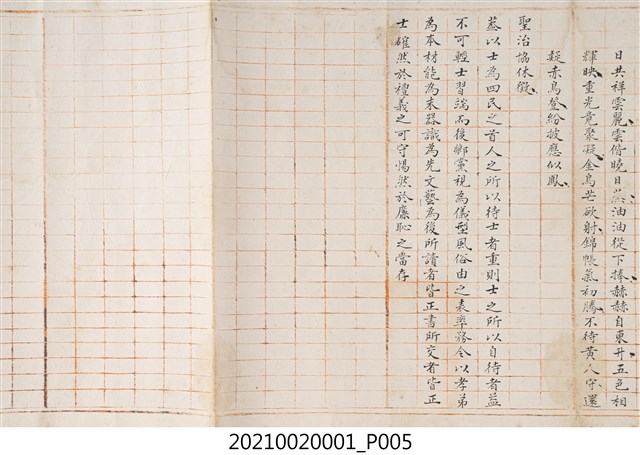 日共祥雲麗雲偕曉日蒸油油從下捧赫赫自東升五色相
輝映重光竟聚凝金烏芒欲射錦帳氣初騰不待黃人守還
疑赤鳥登紛披應似鳳
聖治協休徵
蓋以士為四民之首人之所以待士者重則士之所以自待者益
不可輕士習端而後鄉黨視為儀型風俗由之表率務令以孝弟
為本材能為末器識為先文藝為後所讀者皆正書所交者皆正
士確然於禮義之可守惕然於廉恥之當存
20210020001_P005